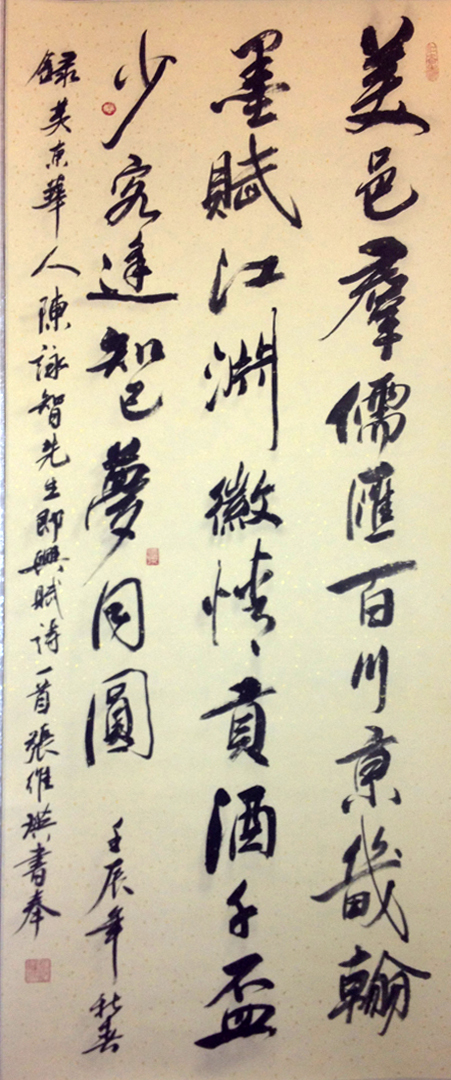 美邑羣儒匯百川京畿翰
墨賦江淵徽情貢酒千盃
少客逢知己夢同圓 壬辰年秋
錄美京華人陳詠智先生即興賦詩一首張維書奉